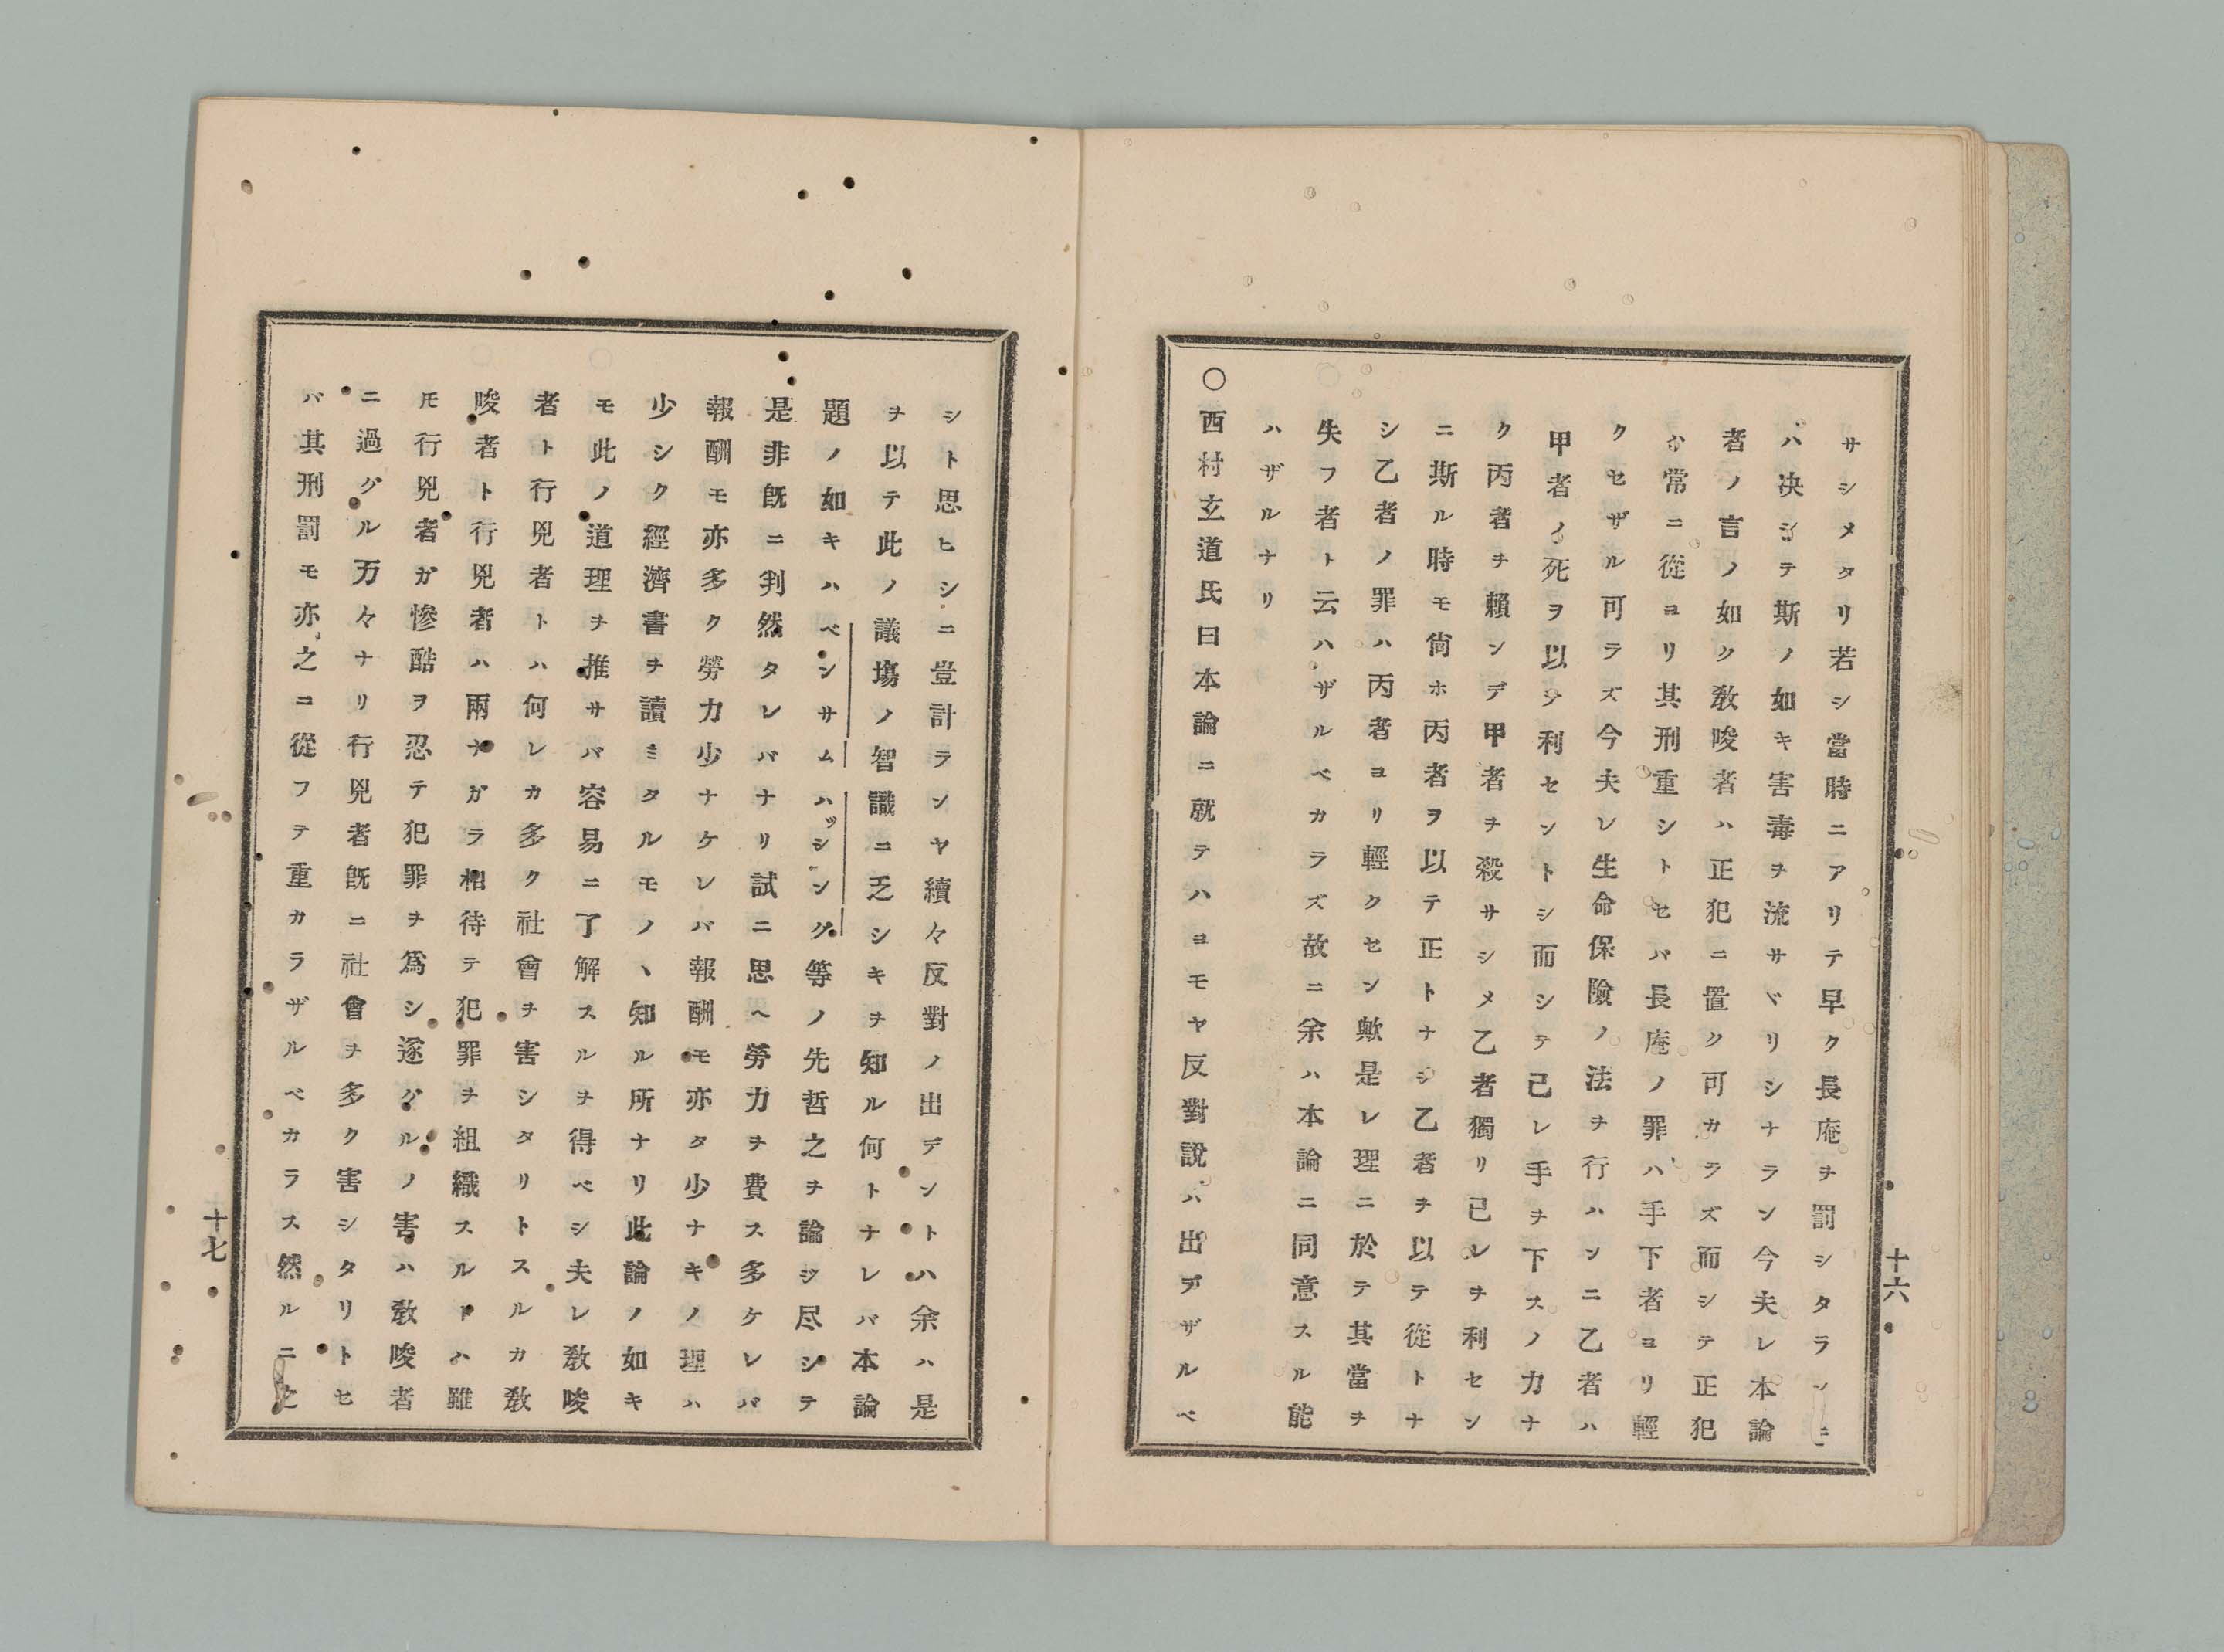 サシメタリ若シ當時ニアリテ早ク長庵ヲ罰シタランニ
ハ决シテ斯ノ如キ害毒ヲ流サヾリシナラン今夫レ本論
者ノ言ノ如ク敎唆者ハ正犯ニ置ク可カラズ而シテ正犯
ハ常ニ從ヨリ其刑重シトセバ長庵ノ罪ハ手下者ヨリ輕
クセザル可ラズ今夫レ生命保險ノ法ヲ行ハンニ乙者ハ
甲者ノ死ヲ以テ利セントシ而シテ己レ手ヲ下スノ力ナ
ク丙者ヲ賴ンデ甲者ヲ殺サシメ乙者獨リ己レヲ利セン
ニ斯ル時モ尙ホ丙者ヲ以テ正トナシ乙者ヲ以テ從トナ
シ乙者ノ罪ハ丙者ヨリ輕クセン歟是レ理ニ於テ其當ヲ
失フ者ト云ハザルベカラズ故ニ余ハ本論ニ同意スル能
ハザルナリ
〇西村玄道氏曰本論ニ就テハヨモヤ反對說ハ出デザルベ
十六
シト思ヒシニ豈計ランヤ續々反對ノ出デントハ余ハ是
ヲ以テ此ノ議塲ノ智識ニ乏シキヲ知ル何トナレバ本論
題ノ如キハベンサムハッシング等ノ先哲之ヲ論ジ尽シテ
是非旣ニ判然タレバナリ試ニ思ヘ勞力ヲ費ス多ケレバ
報酬モ亦多ク勞力少ナケレバ報酬モ亦タ少ナキノ理ハ
少シク經濟書ヲ讀ミタルモノヽ知ル所ナリ此論ノ如キ
モ此ノ道理ヲ推サバ容易ニ了解スルヲ得ベシ夫レ敎唆
者ト行兇者トハ何レカ多ク社會ヲ害シタリトスルカ敎
唆者ト行兇者ハ兩ナガラ相待テ犯罪ヲ組織スルトハ雖
モ行兇者ガ慘酷ヲ忍テ犯罪ヲ爲シ遂グルノ害ハ敎唆者
ニ過グル万々ナリ行兇者旣ニ社會ヲ多ク害シタリトセ
バ其刑罰モ亦之ニ從フテ重カラザルベカラス然ルニ之
十七